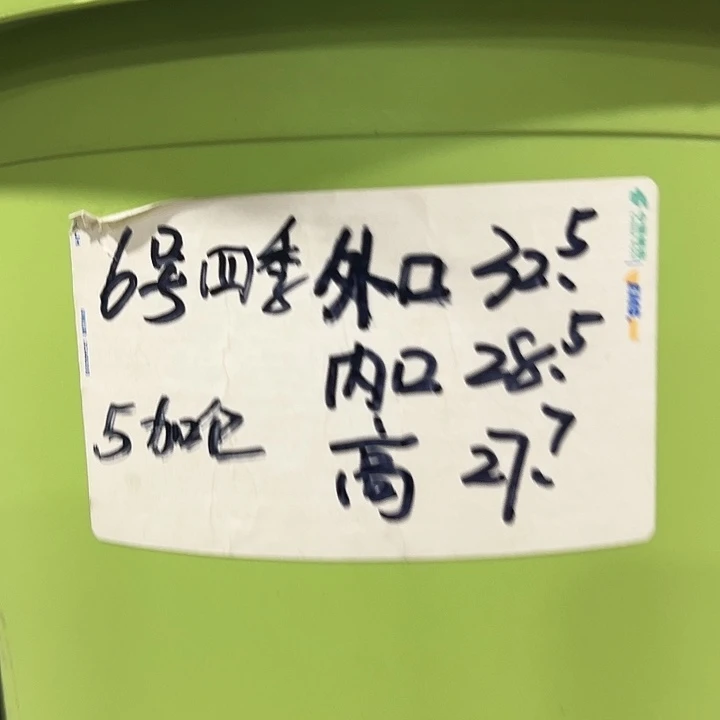 6号四季 外口 32.5
内口 28.5
5加仑
高 27.7